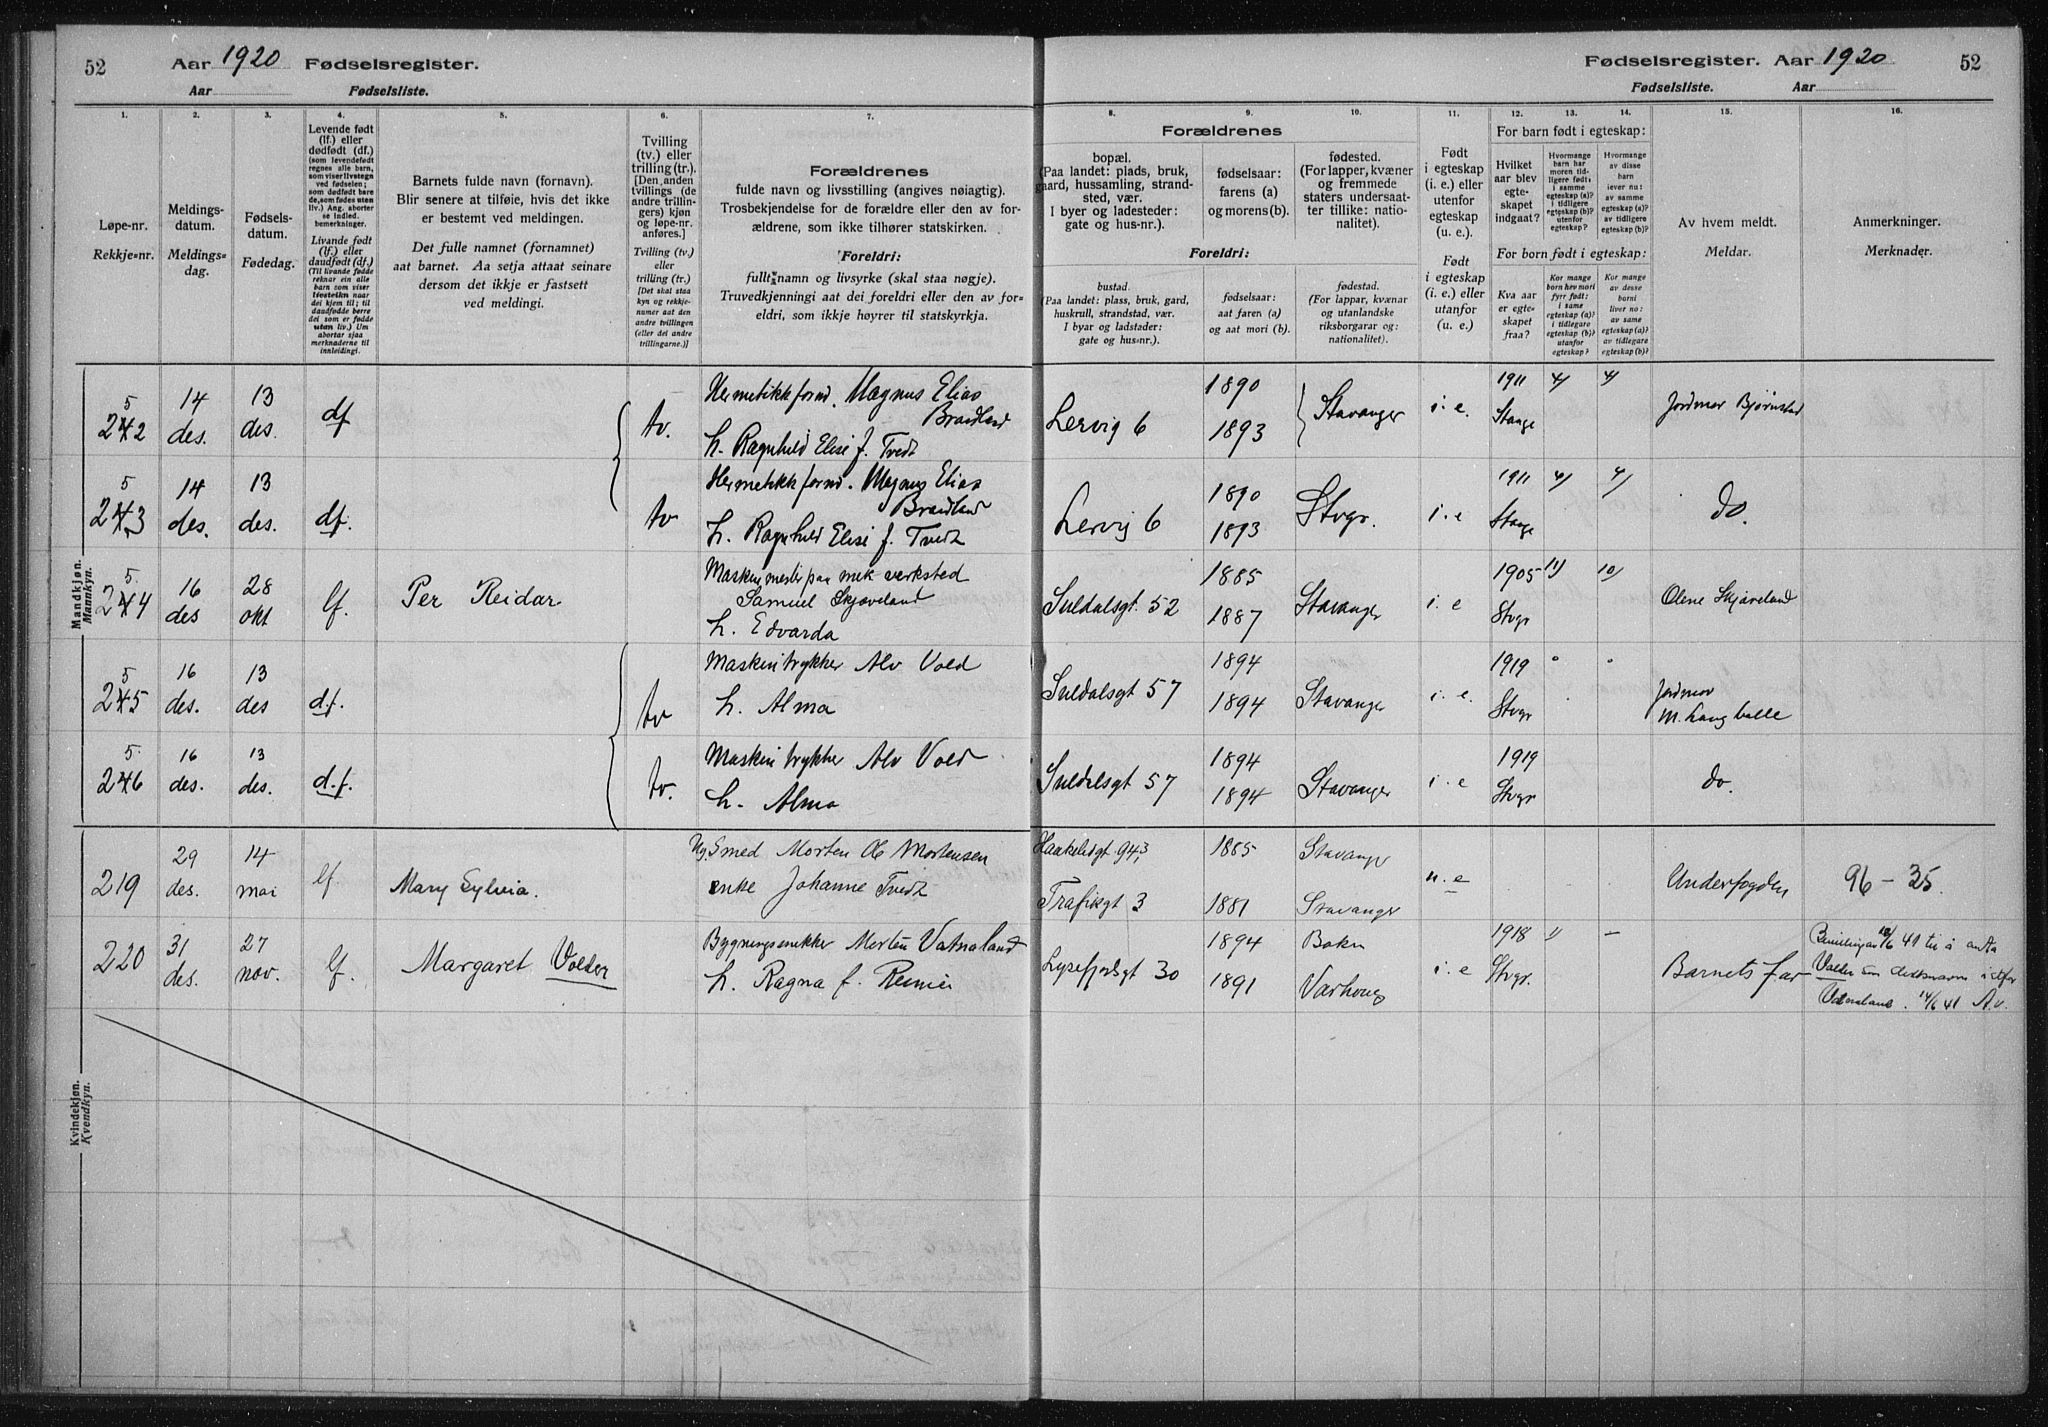 52 Aar 1920 Fødselsregister.
Aar Fødselsliste.
1. 2. 3. 4. 5. 6. 7.
Løpe-nr.
Rekkje-nr.
Meldings-
datum.
Meldings-
dag.
Fødsels-
datum.
Fødedag.
Levende født
(lf.) eller
dødfødt (df.)
(som levendefødt
regnes alle barn,
som viser livstegn
ved fødselen;
som dødfødt bare
de, som fødes uten
liv.) Ang. aborter
se indled.
bemerkninger.
Livande født
(lf.) eller
daudfødt (df.)
(Til livande fødde
reknar ein alle
barn som viser
livsteikn naar
dei kjem til; til
daudfødde berre
dei som er fødde
utan liv.) Um
abortar sjaa
merknaderne til
innleidingi.
Barnets fulde navn (fornavn).
Blir senere at tilføie, hvis det ikke
er bestemt ved meldingen.
Det fulle namnet (fornamnet)
aat barnet. Aa setja attaat seinare
dersom det ikkje er fastsett
ved meldingi.
Tvilling
(tv.) eller
trilling (tr.).
[Den anden
tvillings (de
andre trillin-
gers) kjøn
og løpe-nr.
anføres.]
Tvilling (tv.)
eller
trilling (tr.)
[Det skal staa
kyn og rekkje-
numer aat den
andre tvillingen
(eller dei andre
trillingarne.)]
Forældrenes
fulde navn og livsstilling (angives nøiagtig).
Trosbekjendelse for de forældre eller den av for-
ældrene, som ikke tilhører statskirken.
Foreldri:
fullt namn og livsyrke (skal staa nøgje).
Truvedkjenningi aat dei foreldri eller den av for-
eldri, som ikkje høyrer til statskyrkja.
Mandkjøn.
Mannkyn.
5
242 14 des. 13 des. df tv. Hermetikkfornd. Magnus Elias
Braudland
h. Ragnhild Elise f. Tvedt
5
243 14 des. 13 des. df. tv Hermetikkfornd. Magnus Elias
Braudland
h. Ragnhild Elise f. Tvedt
5
244 16 des 28 okt lf. Per Reidar Maskinmester paa mek verksted
Samuel Skjæveland
h. Edvarda
5
245 16 des. 13 des d.f. tv Maskintrykker Alv Vold
h. Alma
5
246 16 des. 13 des. d.f. tv. Maskintrykker Alv Vold
h. Alma
Kvindekjøn.
Kvendkyn.
219 29 des. 14 mai lf. Mary Sylvia. Ug Smed Morten Mortensen
enke Johanne Tvedt
220 31 des. 27 nov. lf. Margaret Volder Bygningssnekker Morten Vatnaland
h. Ragna f. Reime
Fødselsregister. Aar 1920 52
Fødselsliste. Aar
8. 9. 10. 11. 12. 13. 14. 15. 16.
Forældrenes
bopæl.
(Paa landet: plads, bruk,
gaard, hussamling, strand-
sted, vær.
I byer og ladesteder:
gate og hus-nr.).
fødselsaar:
farens (a)
og morens (b).
fødested.
(For lapper, kvæner
og fremmede
staters undersaat-
ter tillike: natio-
nalitet).
Foreldri:
bustad.
(Paa landet: plass, bruk, gard,
huskrull, strandstad, vær.
I byar og ladstader:
gate og hus-nr.).
fødselsaar:
aat faren (a)
og aat mori (b).
fødestad.
(For lappar, kvænar
og utanlandske
riksborgarar og:
nationalitet).
Født
i egteskap
(i. e.) eller
utenfor
egteskap
(u. e.).
Født
i egteskap
(i. e.) eller
utanfor
(u. e.).
For barn født i egteskap:
Hvilket
aar blev
egte-
skapet
indgaat?
Hvormange
barn har
moren tid-
ligere født:
i samme
egteskap (a)?
i tidligere
egteskap (b)?
utenfor
egteskap?
Hvormange
av disse
barn
lever nu:
av samme
egteskap (a)?
av tidligere
egteskap (b)?
For born født i egteskap:
Kva aar
er egte-
skapet
fraa?
Kor mange
born hev mori
fyrr født:
i same
egteskap (a)?
i tidlegare
egteskap (b)?
utanfor
egteskap?
Kor mange
av desse
borni
liver no:
av same
egteskap (a)?
av tidlegare
egteskap (b)?
Av hvem meldt.
Meldar.
Anmerkninger.
Merknader.
Lervig 6 1890 1893 Stavanger i. e. 1911 Stange 4/ 4/ Jordmor Bjørnstad
Lervig 6 1890 1893 Stvgr. i. e 1911 Stange 4/ 4/ do.
Suldalsgt. 52 1885 1887 Stavanger i. e 1905 Stvgr 11/ 10/ Olene Skjæveland
Suldalsgt 57 1894 1894 Stavanger i. e. 1919 Stvgr Jordmor
M. Langballe
Suldalsgt 57 1894 1894 Stavanger i. e 1919 Stvgr do.
Haakeliigt 94,3 1885 Stavanger
Trafikgt 3 1881 Stavanger u. e Underfogden 96 – 35.
Lysefjordsgt 30 1894 1891 Bokn Varhoug i. e 1918 Stvgr. 1/ – Barnets far 18/6 41 til å anta
Volder som
Vatnaland. 14/6 41 A.v.